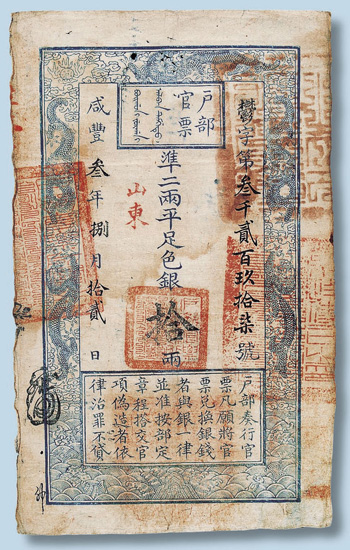 戶部
官票
鬱字第叁千貳百玖拾柒號
準二兩平足色銀拾兩
山東
咸豐叁年捌月拾貳日
戶部奏行官
票凡願將官
票兌換銀錢
者與銀一律
並准按部定
章程搭交官
項偽造者依
律治罪不貸